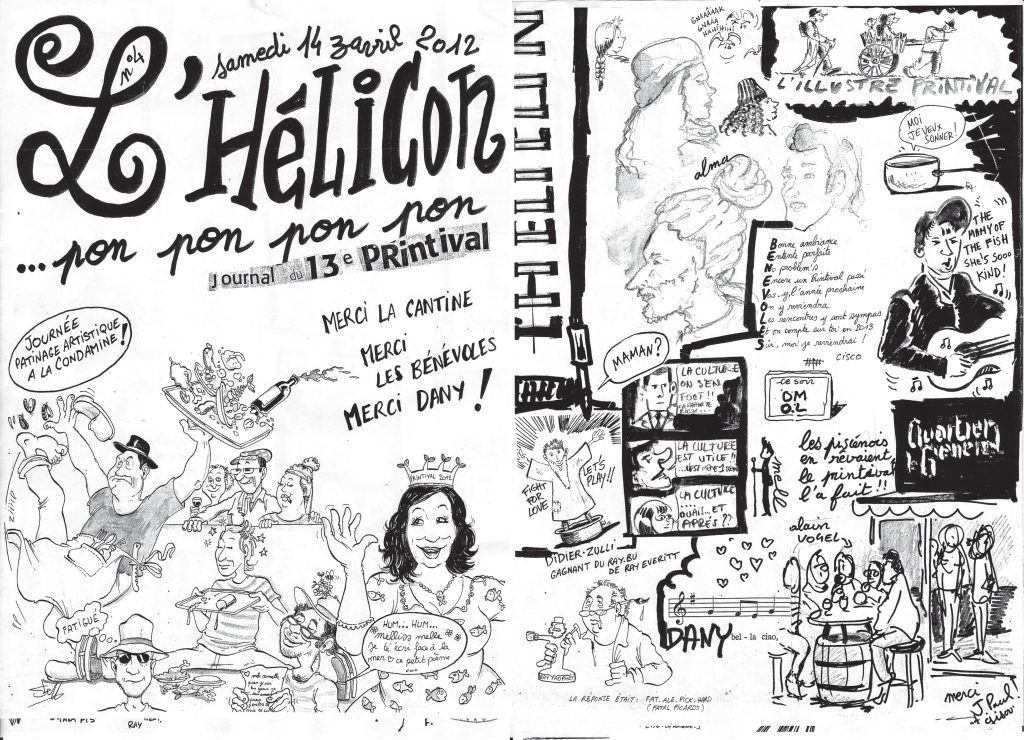 Samedi 14 zavril 2012
n°4
L'HéLiCon
... pon pon pon pon
Journal du 13e PRintival
MERCI LA CANTINE
MERCI
LES BÉNÉVOLES
MERCI DANY !
JOURNÉE
PATINAGE ARTISTIQUE
A LA CONDAMINE !
PRINTIVAL 2012
FATIGUE
HUM... HUM...
melliss melle
Je té écri face à la
mer ce petit poème
...
RAY
GNIAAAAK
GNAAA
HAHIHIHI
L'ILLUSTRE PRINTIVAL
MOI
JE VEUX
SONNER !
alma
THE
MAMY OF
THE FISH
SHE'S SOOO
KIND !
Bonne ambiance
Entente parfaite
No problem's
Encore un Printival passé
Vas-y, l'année prochaine
On y reviendra
Les rencontres y sont sympas
Et on compte sur toi en 2013
Sûr, moi je reviendrai !
CISCO
MAMAN ?
LA CULTURE
ON S'EN
FOUT !!
LA CULTURE
EST UTILE !!
LA CULTURE
.....
OUAIS... ET
APRÈS ??
ce soir
DM
O2L
melle
les piscénois
en rêvaient
le printival
l'a fait !!
Quartier
Generien
FIGHT
FOR
LOVE
LET'S
PLAY !!
DIDIER-ZULLI
GAGNANT DU RAY.BU
DE RAY EVERITT
alain
VOGEL
DANY bel - la ciao,
LA RÉPONSE ÉTAIT : FAT. ALE. PICK. HARD
(FATAL PICARDS)
merci
J. Paul !